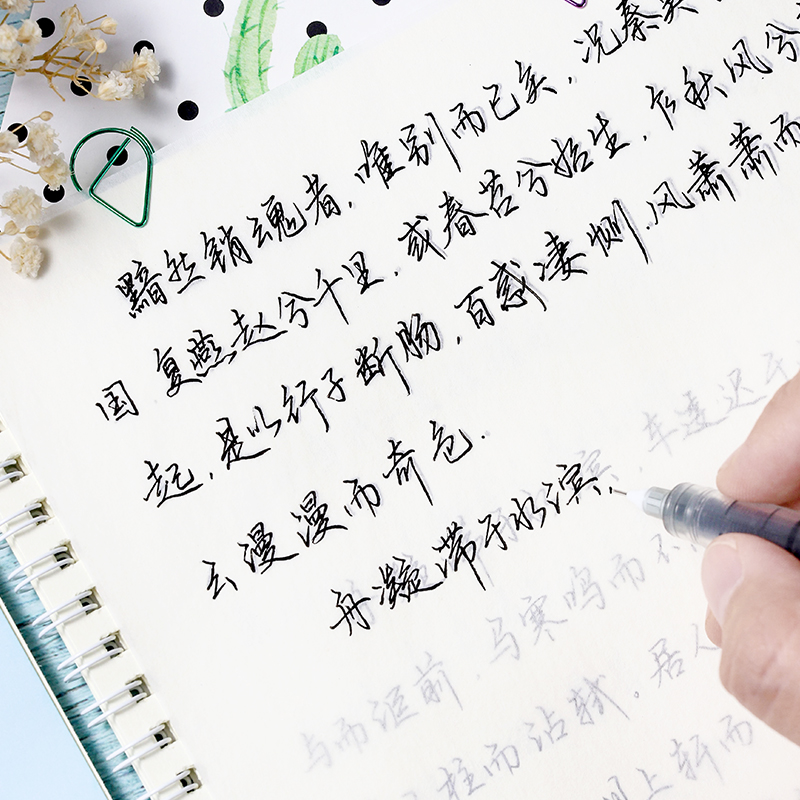 黯然销魂者，唯别而已矣，况秦吴
国 复燕赵兮千里，或春苔兮始生，乍秋风兮
起，是以行子断肠，百感凄恻，风萧萧而
云漫漫而奇色.
舟凝滞于水滨，车逶迟于
与而讵前，马寒鸣而不
柱而沾轼。居人
上轩而